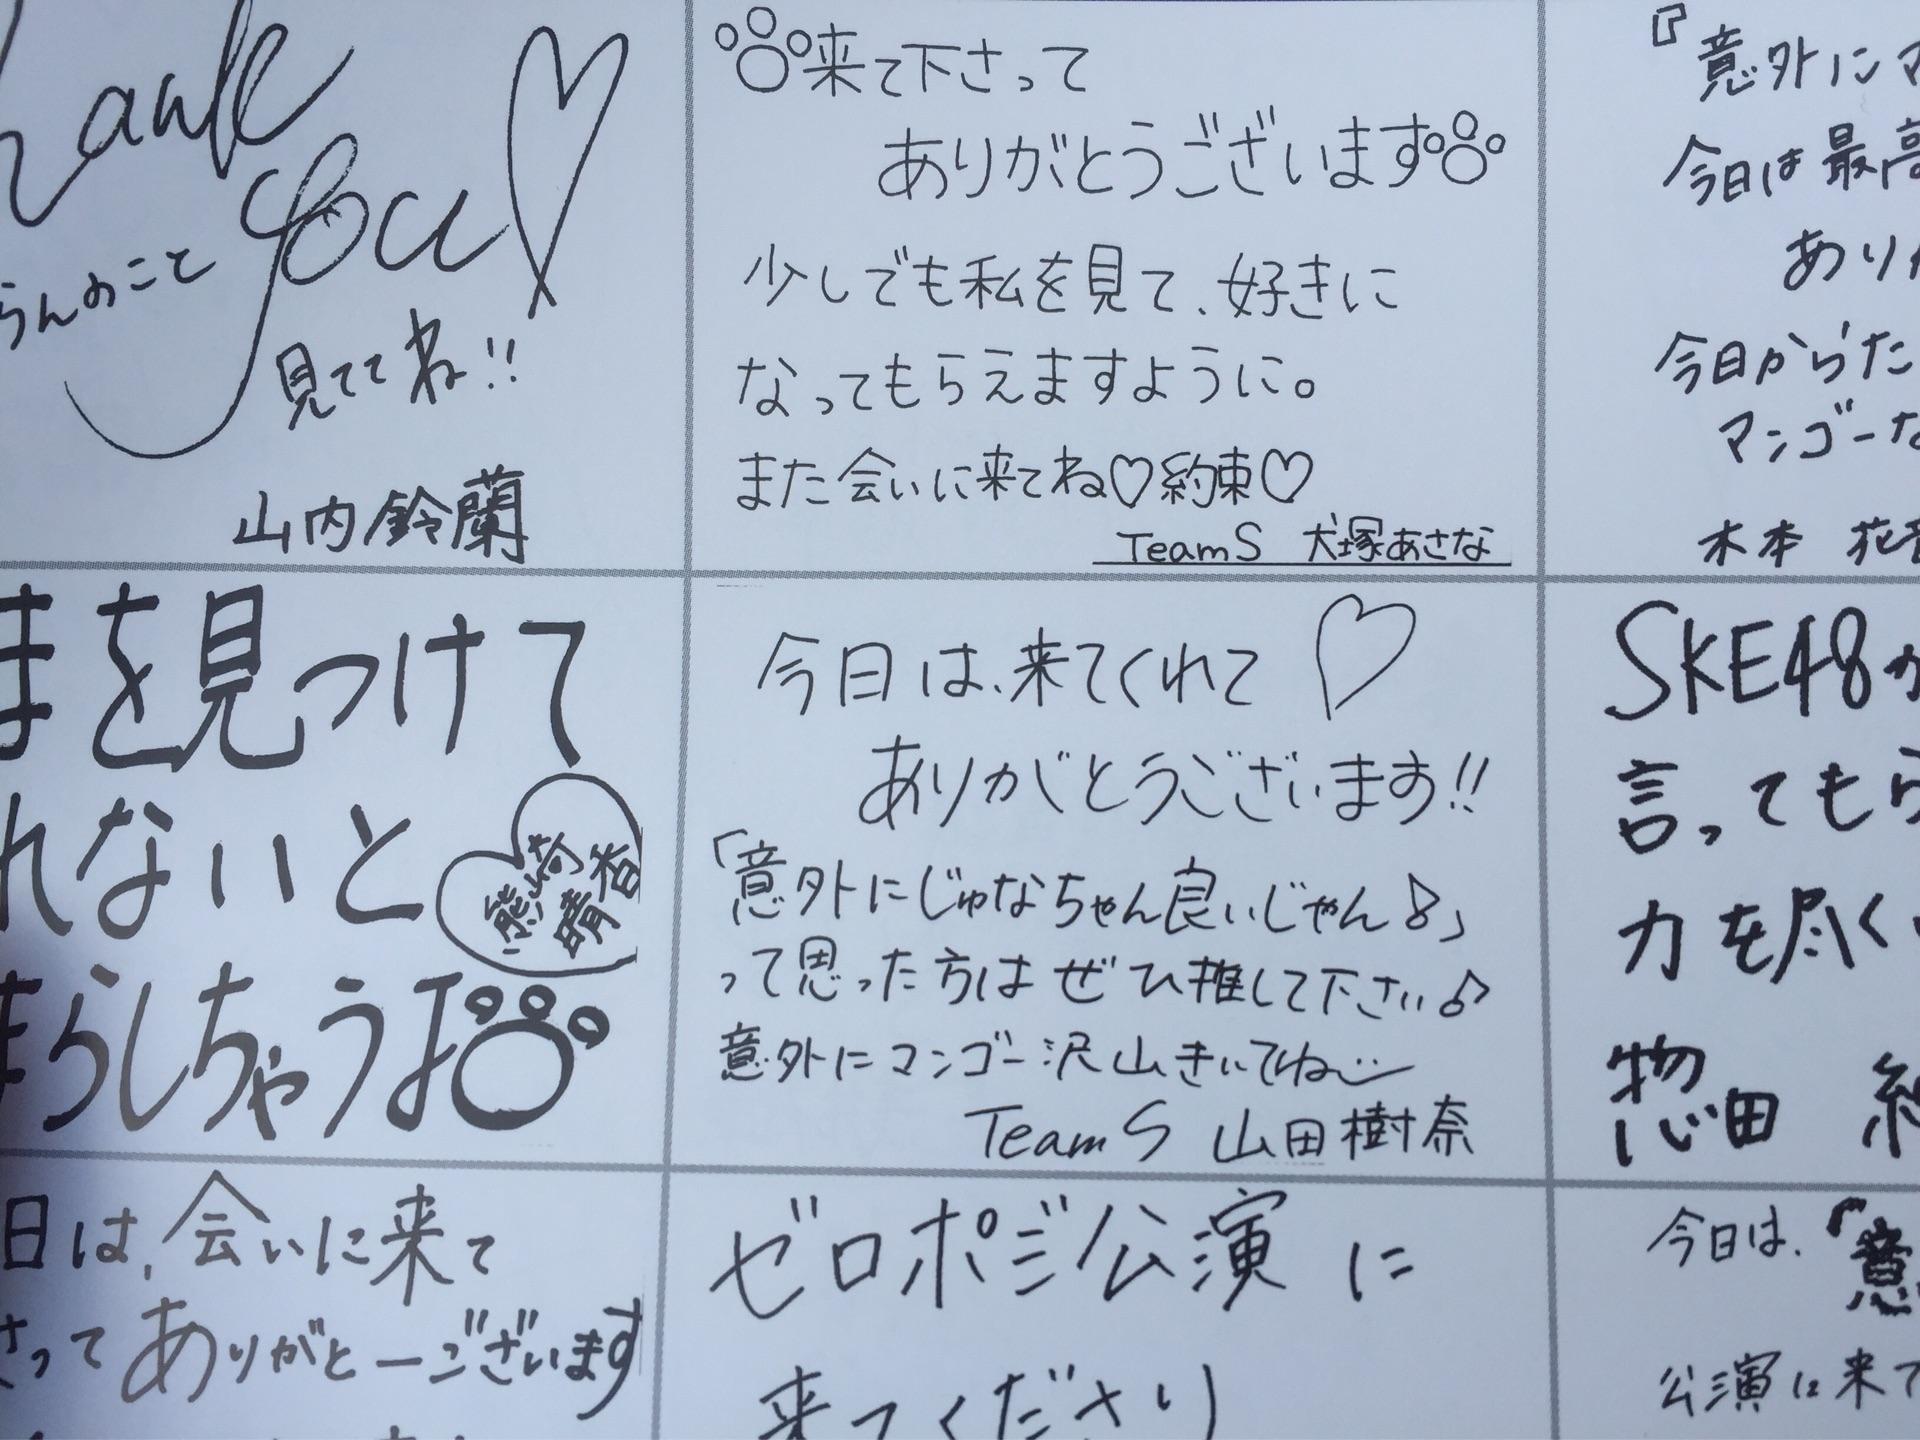 Thank
you
らんのこと
見ててね!!
山内鈴蘭
来て下さって
ありがとうございます
少しでも私を見て、好きに
なってもらえますように。
また会いに来てね♡約束♡
TeamS 犬塚あさな
『意外にマ
今日は最高
ありが
今日からた
マンゴーな
木本 花音
まを見つけて
れないと
熊崎晴香
らしちゃうよ
今日は、来てくれて♡
ありがとうございます!!
「意外にじゅなちゃん良いじゃん♪」
って思った方はぜひ推して下さい♪
意外にマンゴー沢山きいてね
TeamS 山田樹奈
SKE48が
言ってもら
力を尽く
惣田 紗
日は、会いに来て
さってありがとーございます
ゼロポジ公演に
来てくださり
今日は、『意
公演に来て